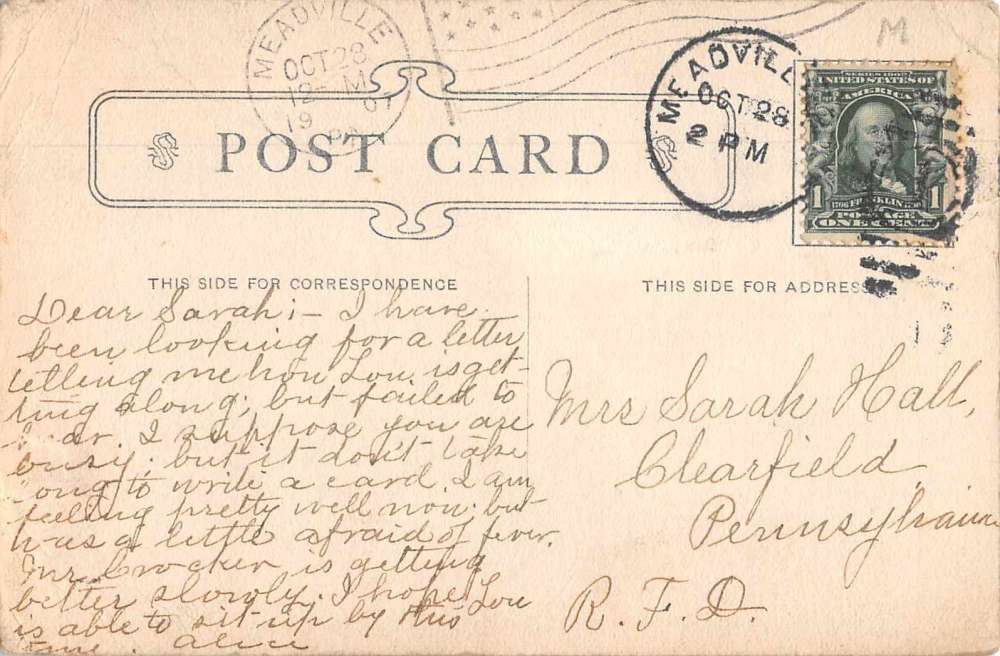 MEADVILLE
OCT 28
12- M
19 07
PA
MEADVILL
OCT 28
2 PM
M
SERIES 1902
UNITED STATES OF
AMERICA
1 1
1706 FRANKLIN 1790
POSTAGE
ONE CENT
POST CARD
THIS SIDE FOR CORRESPONDENCE
THIS SIDE FOR ADDRESS
Dear Sarah;– I have
been looking for a letter
telling me how Lou is get-
ting along; but failed to
hear. I suppose you are
busy; but it don't take
long to write a card. I am
feeling pretty well now; but
was a little afraid of fever.
Mr. Crocker is getting
better slowly. I hope Lou
is able to sit up by this
time. Alice
Mrs Sarah Hall,
Clearfield
Pennsylvania
R. F. D.